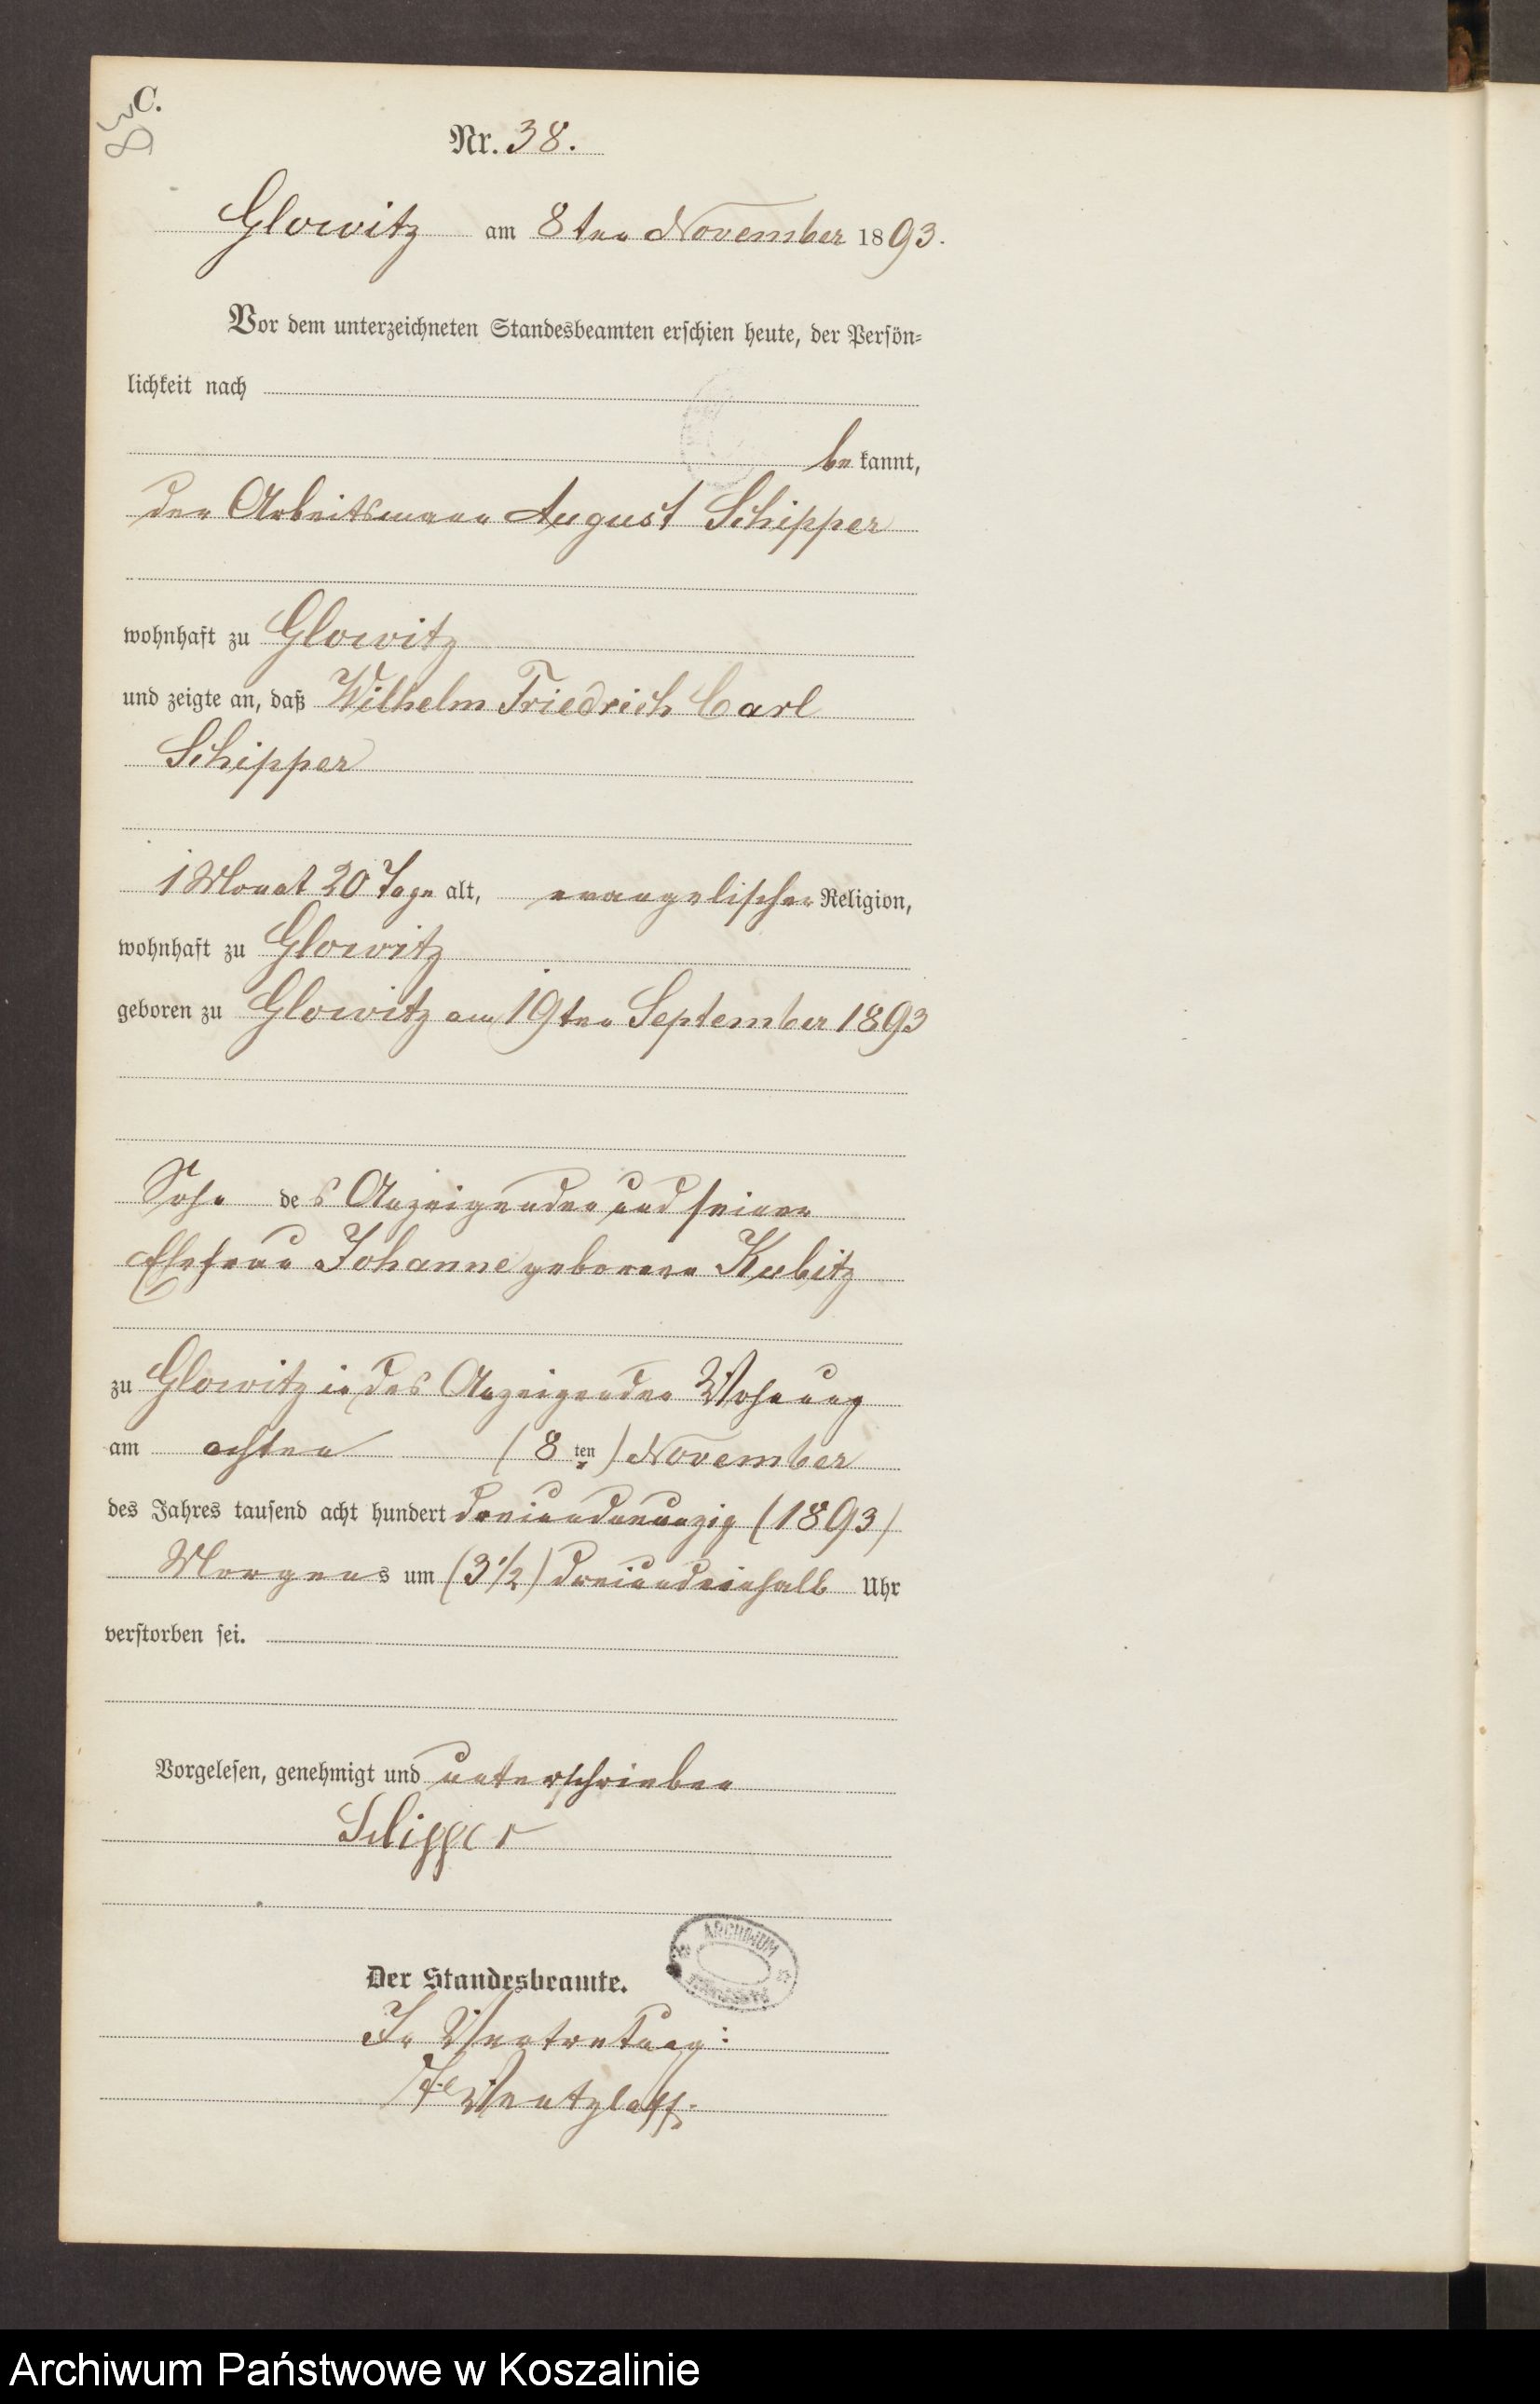 C.
38
Nr. 38.
Glowitz am 8ten November 1893.
Vor dem unterzeichneten Standesbeamten erschien heute, der Persön-
lichkeit nach
bekannt,
der Arbeitsmann August Schipper
wohnhaft zu Glowitz
und zeigte an, daß Wilhelm Friedrich Carl
Schipper
1 Monat 20 Tage alt, evangelischer Religion,
wohnhaft zu Glowitz
geboren zu Glowitz am 19ten September 1893
Sohn des Anzeigenden und seiner
Ehefrau Johanne geborene Kubitz
zu Glowitz in des Anzeigenden Wohnung
am achten (8ten) November
des Jahres tausend acht hundert dreiundneunzig (1893)
Morgens um (3 1/2) dreiundeinhalb Uhr
verstorben sei.
Vorgelesen, genehmigt und unterschrieben
Schipper
ARCHIWUM
Der Standesbeamte.
In Vertretung:
Wentzlaff.
Archiwum Państwowe w Koszalinie